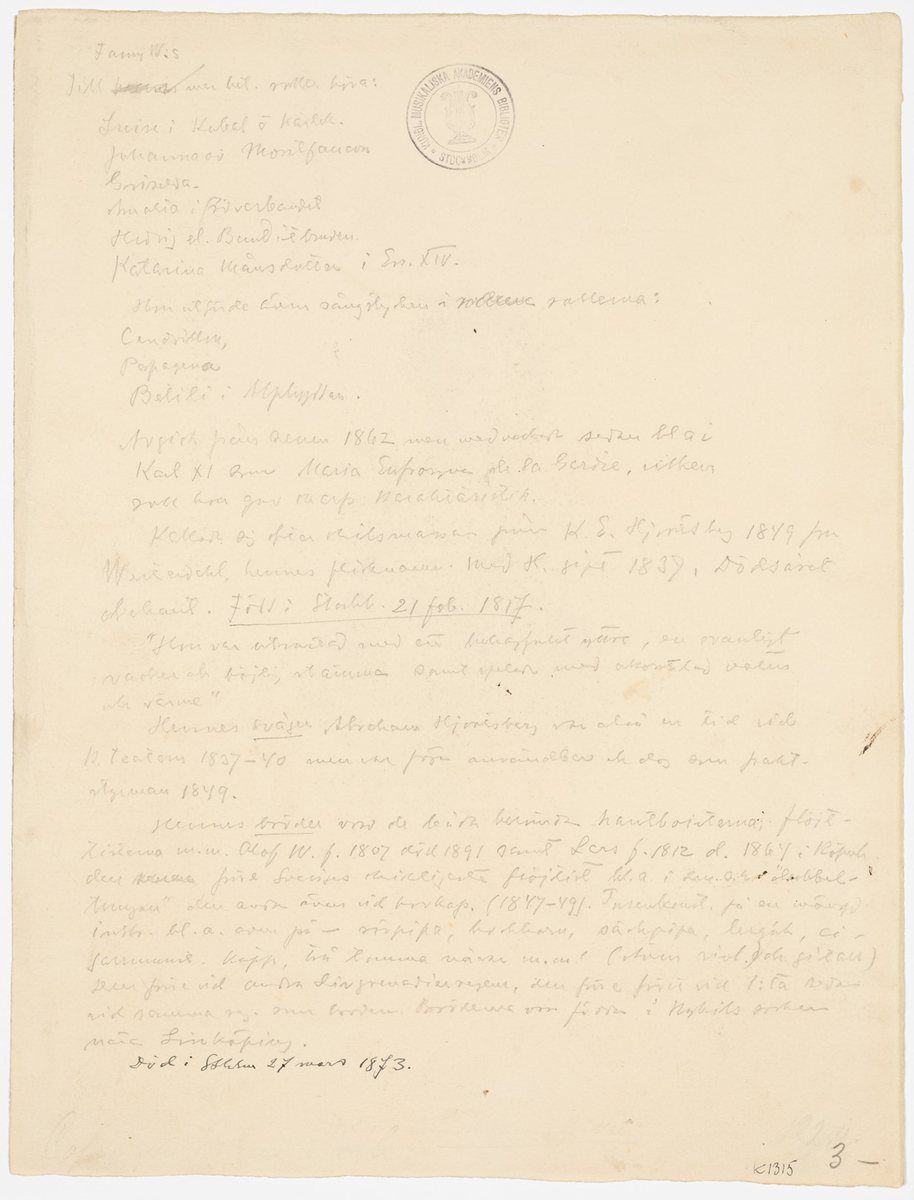 Fanny W:s
Till mer bet. roller höra:
KUNGL. MUSIKALISKA AKADEMIENS BIBLIOTEK
STOCKHOLM
Luise i Kabal o kärlek.
Johanna av Montfaucon
Griselda.
Amalia i Rövarbandet
Hedvig el. Banditbruden.
Katarina Månsdotter i Er. XIV.
Hon utförde även sångstycken i rollerna:
Cendrillon,
Papagena
Betili i Alphyddan.
Avgick från scenen 1862 men medverkade sedan bl a i
Karl XI som Maria Eufrosyne de la Gardie, vilken
roll hon gav skarp karakteristik.
Kallade sig ofta skilsmässan från K. E. Hjortsberg 1849 fru
Westerdahl, hennes flicknamn. Med H. gift 1837. Dödsåret
obekant. Född i Stockh. 21 feb. 1817.
"Hon var utrustad med ett behagfullt yttre, en ovanligt
vacker och böjlig stämma samt spelade med okonstlad
och värme"
Hennes svåger Abraham Hjortsberg var även en tid vid
K. teatern 1837–40 men var föga användbar och dog som
styrman 1849.
Hennes bröder voro de båda berömda hautboisterna, flöjt-
tisterna m.m. Olof W. f. 1807 död 1891 samt Lars f. 1812 d. 1864 i Köpenh.
den förre Sveriges skickligaste flöjtist bl.a. i "dubbel-
tungan" den andre även vid hovkap. (1847–49). Tusenkonst. på en mängd
instr. bl.a. även på – rörpipa, bockhorn, säckpipa, ci-
garrmunst. käpp, två tomma nävar m.m! (även viol. och gitarr)
den förre vid andra livgrenadierregem., den förre först vid 1:sta sedan
vid samma reg. som brodern. Bröderna voro födda i Nykils socken
nära Linköping.
Död i Sthlm 27 mars 1873.
K1315
3 –